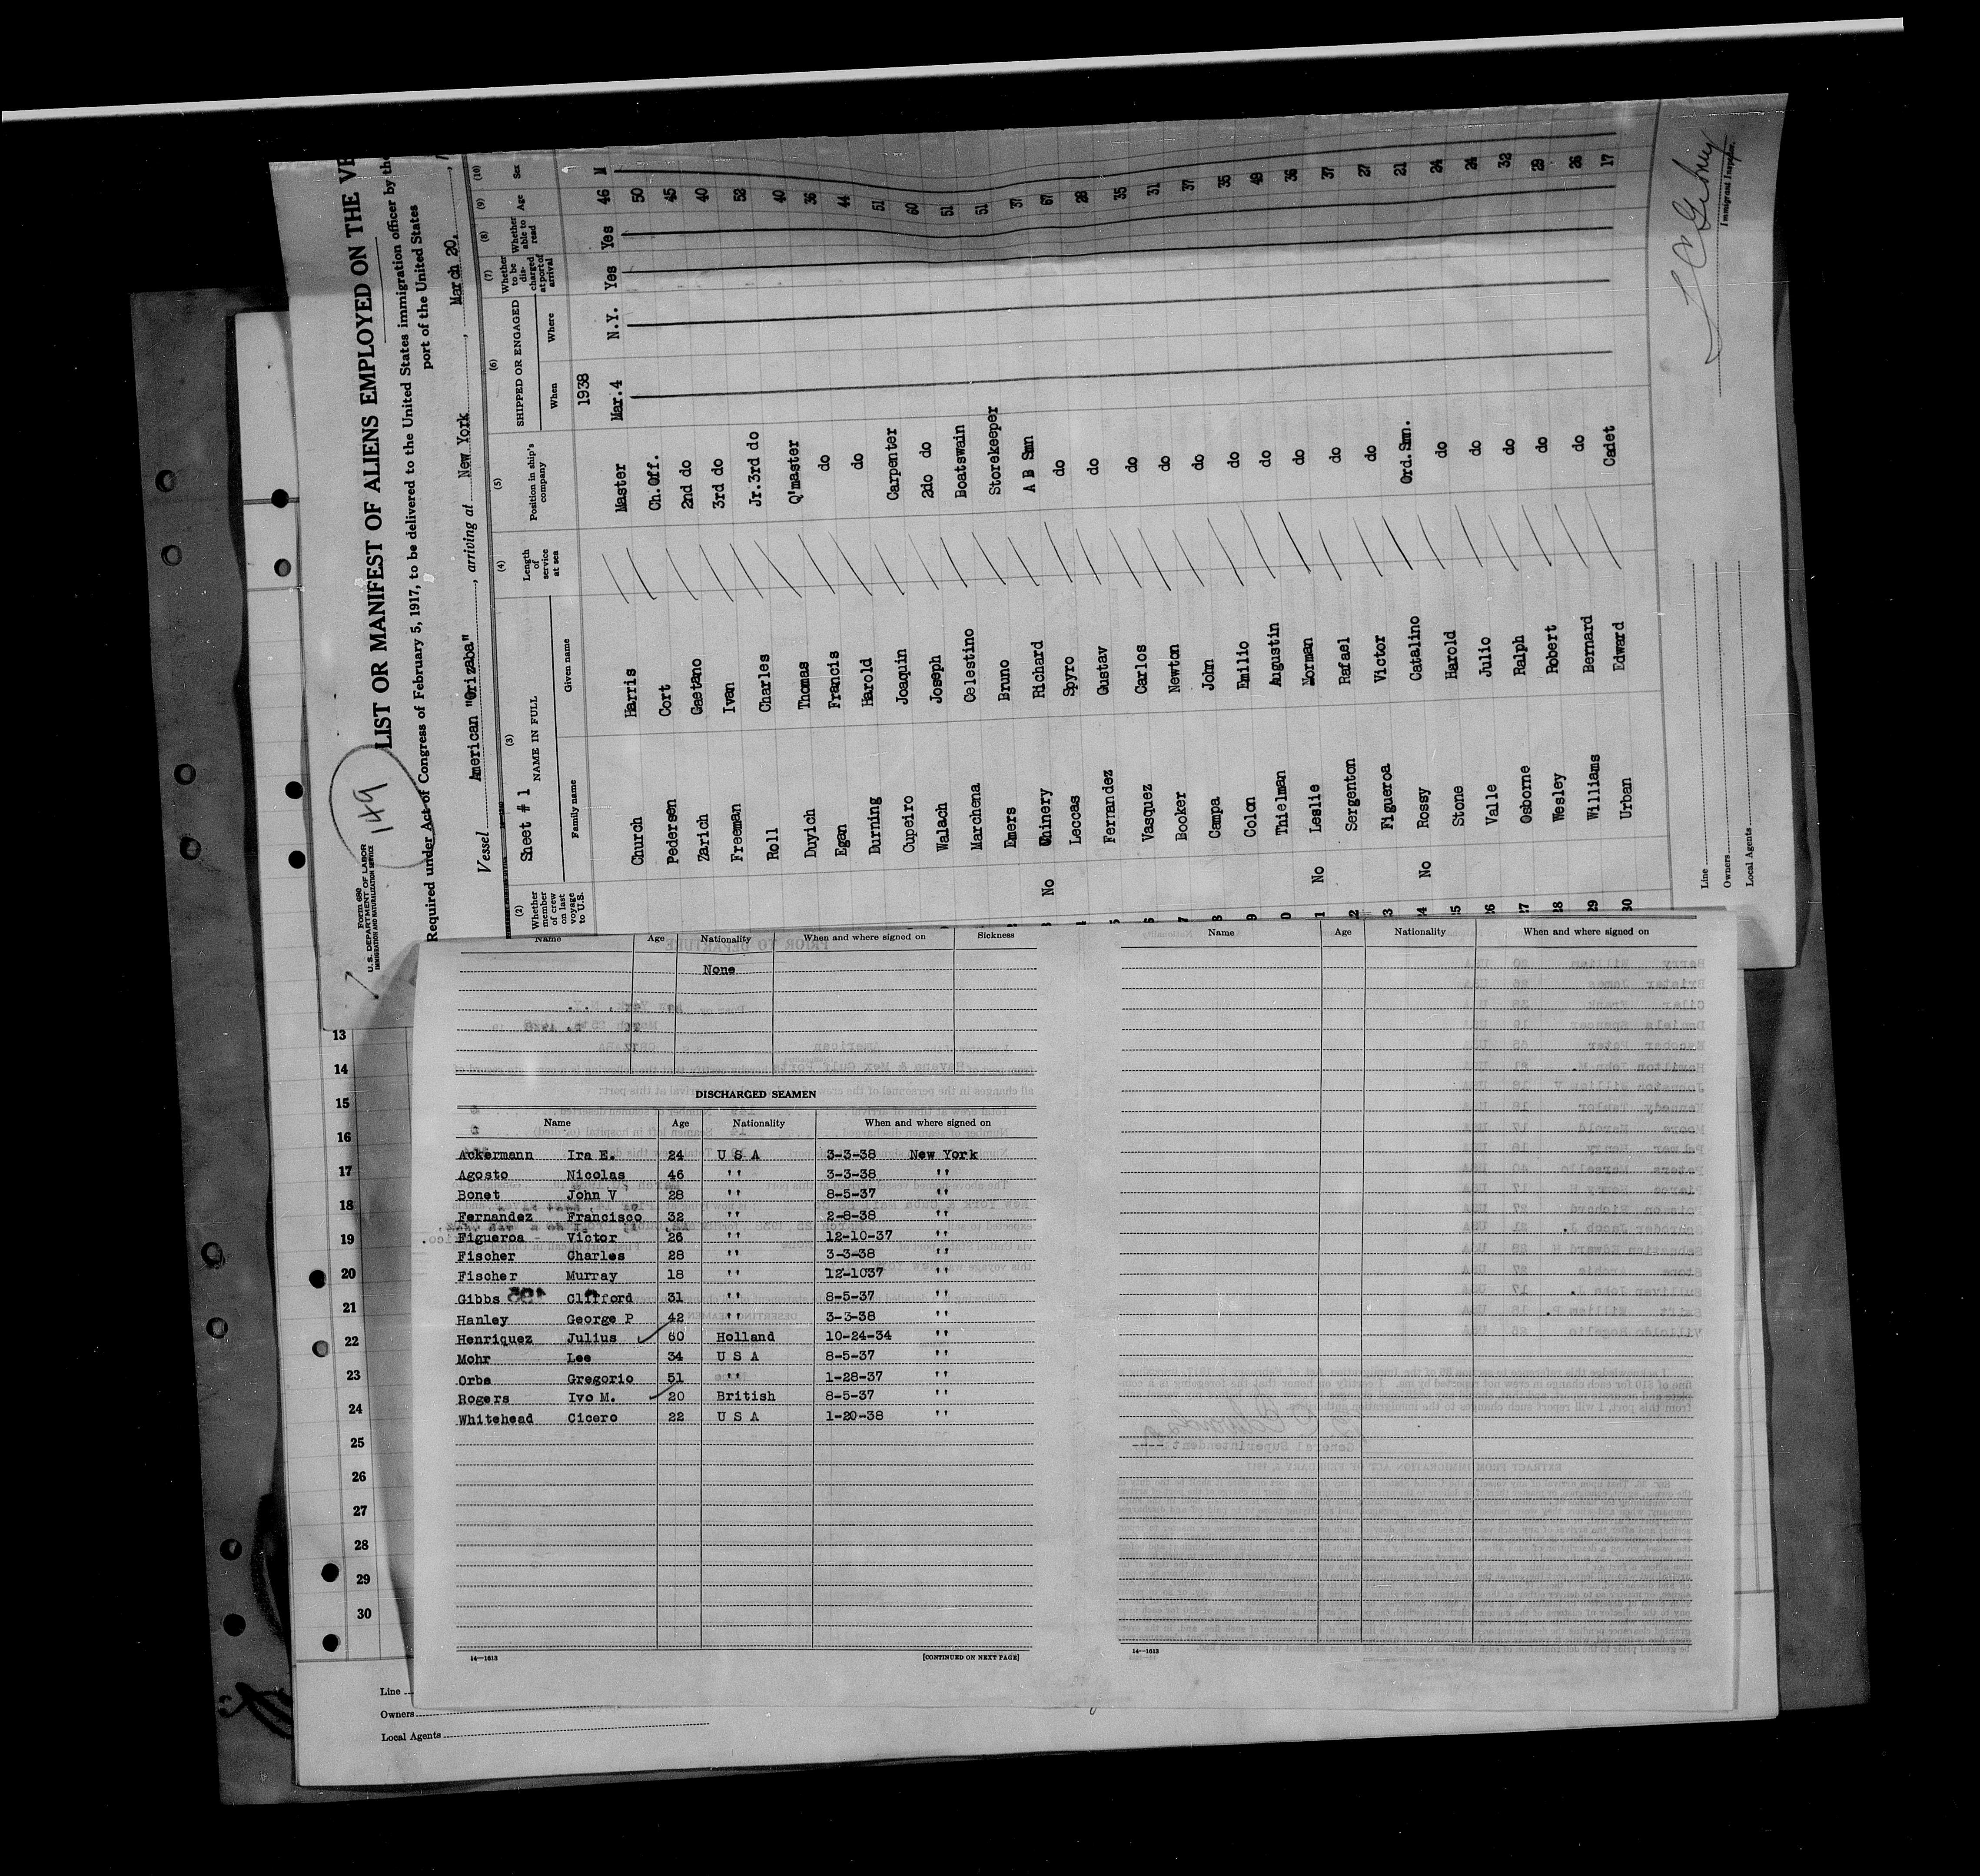 Form 680
U. S. DEPARTMENT OF LABOR
IMMIGRATION AND NATURALIZATION SERVICE
149
LIST OR MANIFEST OF ALIENS EMPLOYED ON THE VE
Required under Act of Congress of February 5, 1917, to be delivered to the United States immigration officer by the
port of the United States
Vessel American "Orizaba", arriving at New York, March 20,
(2) (3) (4) (5) (6) (7) (8) (9) (10)
Whether member of crew on last voyage to U.S.
Sheet # 1 NAME IN FULL
Family name Given name
Length of service at sea
Position in ship's company
SHIPPED OR ENGAGED
When Where
Whether to be discharged at port of arrival
Whether able to read
Age Sex
1938
Church Harris Master Mar.4 N.Y. Yes Yes 46 M
Pedersen Cort Ch.Off. 50
Zarich Gaetano 2nd do 45
Freeman Ivan 3rd do 40
Roll Charles Jr.3rd do 52
Duyich Thomas Q'master 40
Egan Francis do 36
Durning Harold do 44
Cupeiro Joaquin Carpenter 51
Walach Joseph 2do do 60
Marchena Celestino Boatswain 51
Emers Bruno Storekeeper 51
No Chinery Richard A B Smn 37
Leccas Spyro do 67
5 Fernandez Gustav do 28
6 Vasquez Carlos do 35
7 Booker Newton do 31
8 Campa John do 37
9 Colon Emilio do 35
0 Thielman Augustin do 49
1 No Leslie Norman do 36
2 Sergenton Rafael do 37
3 Figueroa Victor do 27
24 No Rossy Catalino Ord.Smn. 21
25 Stone Harold do 24
26 Valle Julio do 24
27 Osborne Ralph do 32
28 Wesley Robert do 29
29 Williams Bernard do 26
30 Urban Edward Cadet 17
Line
Owners
Local Agents
Immigrant Inspector.
Name Age Nationality When and where signed on Sickness
None
DISCHARGED SEAMEN
Name Age Nationality When and where signed on
Ackermann Ira E. 24 U S A 3-3-38 New York
Agosto Nicolas 46 '' 3-3-38 ''
Bonet John V 28 '' 8-5-37 ''
Fernandez Francisco 32 '' 2-8-38 ''
Figueroa Victor 26 '' 12-10-37 ''
Fischer Charles 28 '' 3-3-38 ''
Fischer Murray 18 '' 12-1037 ''
Gibbs Clifford 31 '' 8-5-37 ''
Hanley George P 42 '' 3-3-38 ''
Henriquez Julius 60 Holland 10-24-34 ''
Mohr Lee 34 U S A 8-5-37 ''
Orbe Gregorio 51 '' 1-28-37 ''
Rogers Ivo M. 20 British 8-5-37 ''
Whitehead Cicero 22 U S A 1-20-38 ''
14-1613
[CONTINUED ON NEXT PAGE]
Name Age Nationality When and where signed on
14-1613
13
14
15
16
17
18
19
20
21
22
23
24
25
26
27
28
29
30
Line
Owners
Local Agents